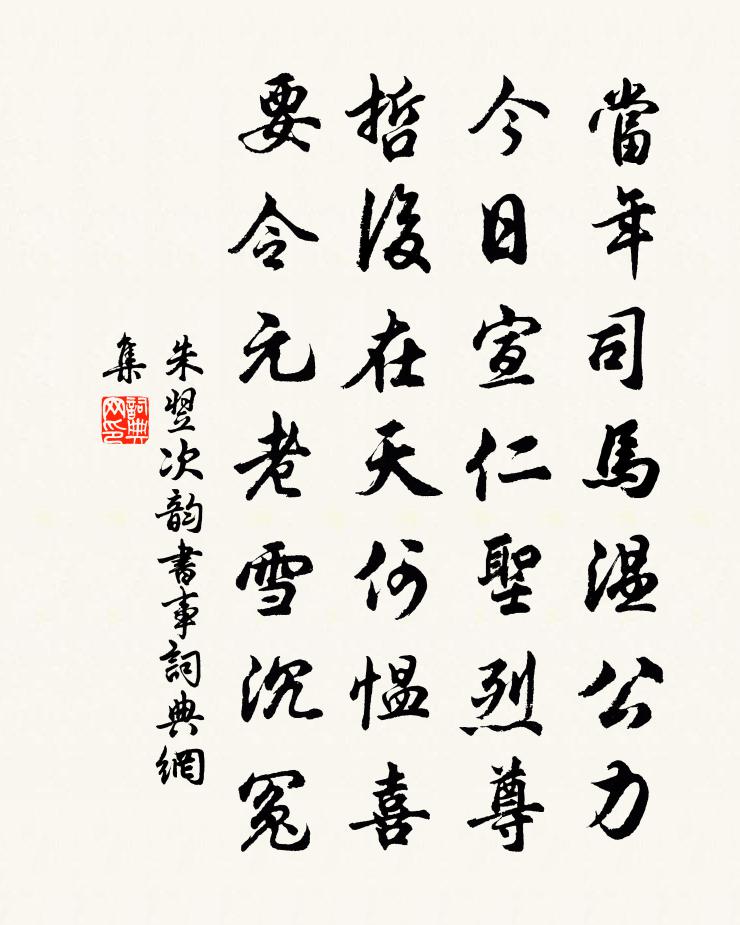 當年司馬温公力
今日宣仁聖烈尊
哲後在天何愠喜
要令元老雪沉冤
朱翌次韵書事詞典網
集
詞典网印